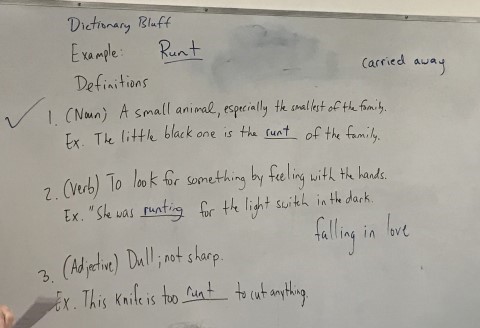 Dictionary Bluff
Example: Runt
carried away
Definitions
1. (Noun) A small animal, especially the smallest of the family.
Ex. The little black one is the runt of the family.
2. (Verb) To look for something by feeling with the hands.
Ex. "She was runting for the light switch in the dark.
falling in love
3. (Adjective) Dull; not sharp.
Ex. This knife is too runt to cut anything.